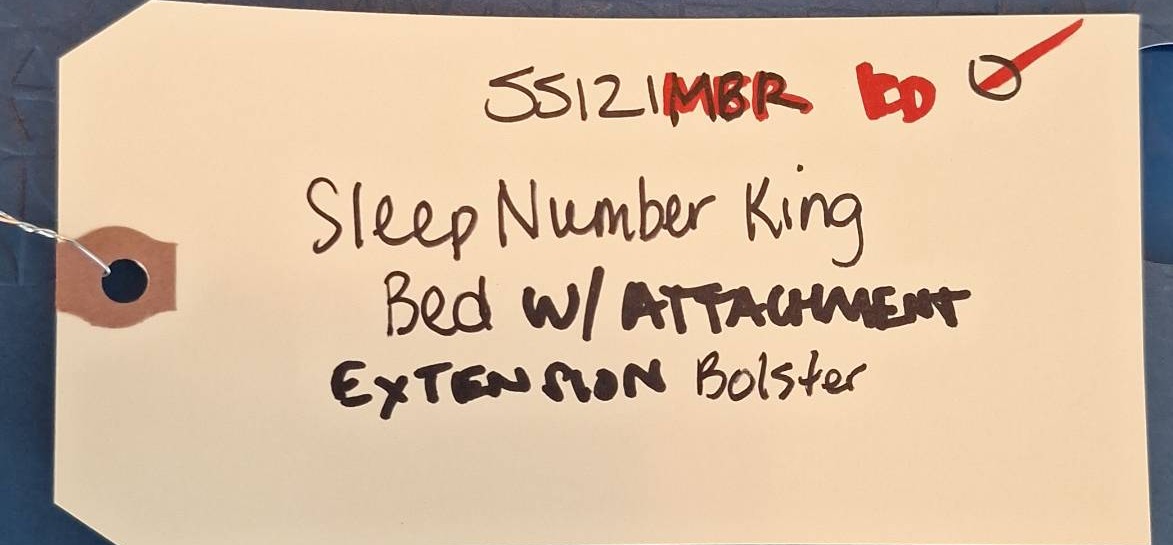 SS121MBR KD
Sleep Number King
Bed W/ ATTACHMENT
EXTENSION Bolster